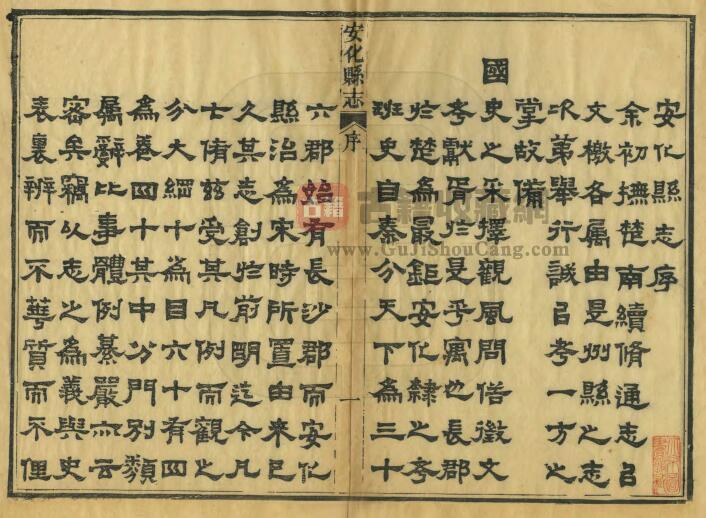 安化縣志序
余初撫楚南續脩通志㠯
文檄各屬由是州縣之志
次第舉行誠㠯考一方之
掌故備
國史之采擇觀風問俗徵文
考獻胥於是乎寓也長郡
於楚為最鉅安化隸之考
班史自秦分天下為三十
安化縣志 序 一
六郡始有長沙郡而安化
縣治為宋時所置由來已
久其志創於前明迄今凡
七脩茲受其凡例而觀之
分大綱十為目六十有四
為卷四十其中分門別類
屬辭比事體例綦嚴亦云
密矣竊以志之為義與史
表裏辨而不華質而不俚
古籍
古籍收藏網
www.GuJiShouCang.com